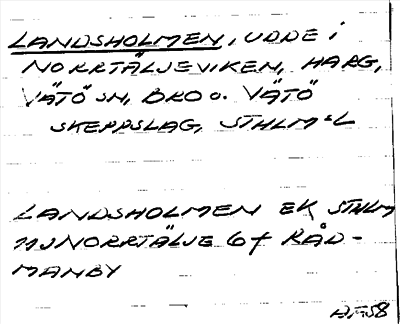 LANDSHOLMEN, UDDE i
NORRTÄLJEVIKEN, HARG,
VÄTÖ SN, BRO o. VÄTÖ
SKEPPSLAG, STHLMS L
LANDSHOLMEN EK STHLM
11J NORRTÄLJE 6f RÅD-
MANBY